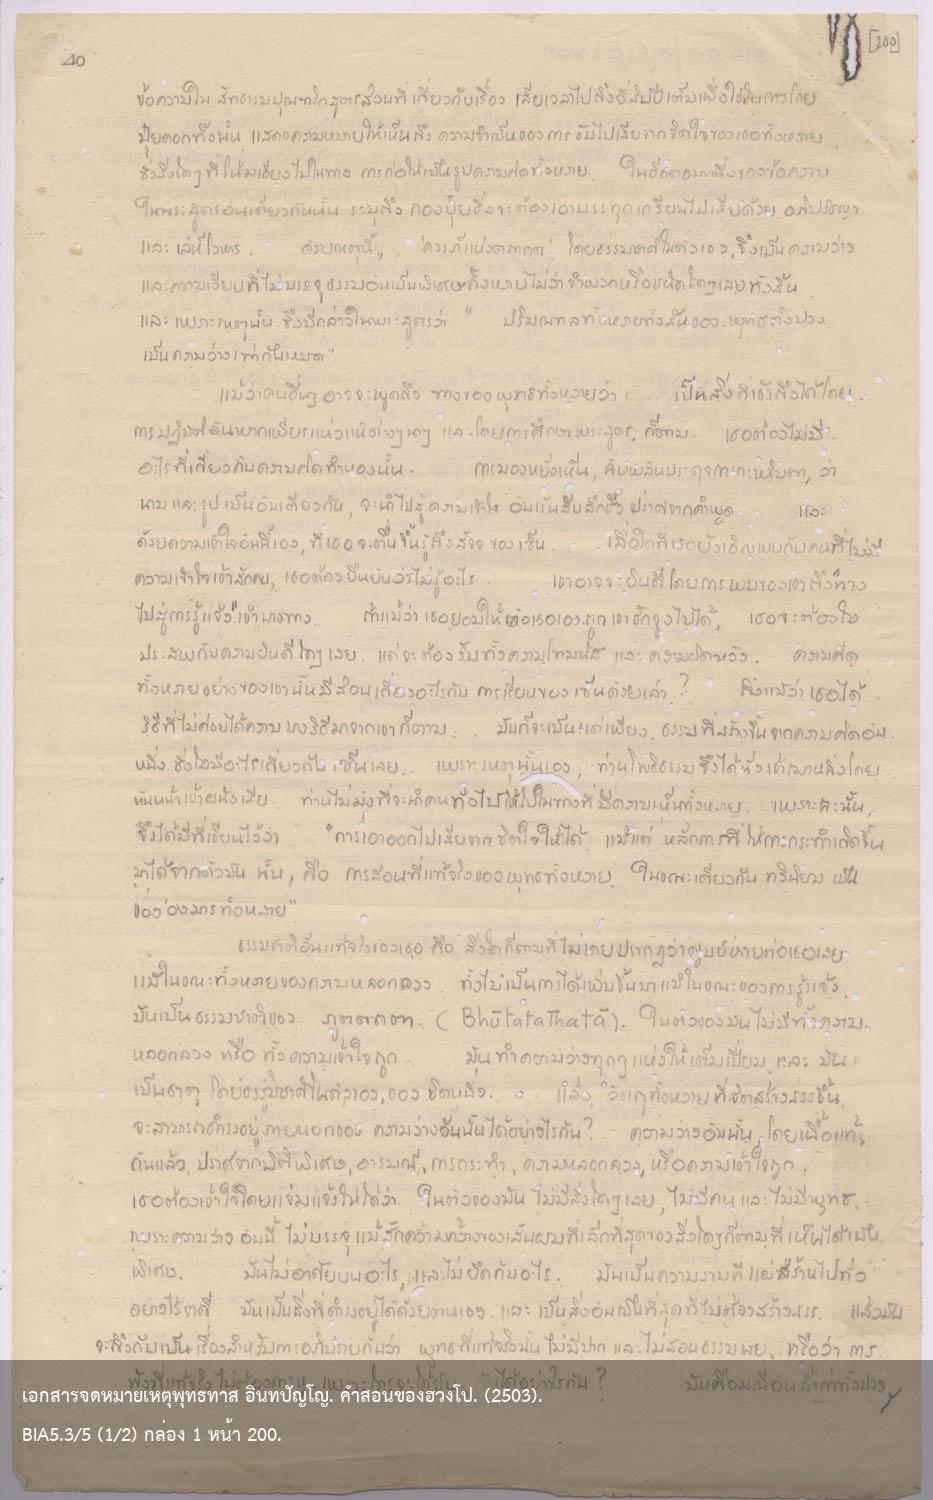 40
[200]
ข้อความใน สัทธรรมปุณฑริกสูตรส่วนที่เกี่ยวกับเรื่อง เสียเวลาไปถึงยี่สิบปีเต็มเพื่อใช้ในการโกย
ปุ๋ยคอกทิ้งนั้น แสดงความหมายให้เห็นถึง ความจำเป็นของการ ขับไปเสียจากจิตใจของเธอทั้งหลาย
ซึ่งสิ่งใดๆที่โน้มเอียงไปในทาง การก่อให้เป็นรูปความคิดทั้งหลาย. ในอีกตอนหนึ่งของข้อความ
ในพระสูตรอันเดียวกันนั้น ระบุถึง กองปุ๋ยซึ่งจะต้องเอาบรรทุกเกวียนไปเสียด้วย อภิปรัชญา
และ เล่ห์โวหาร. ด้วยเหตุนี้, 'ครรภ์แห่งตถาคต' โดยธรรมชาติในตัวเอง, จึงเป็นความว่าง
และความเงียบที่ไม่บรรจุธรรมอันเป็นพิเศษทั้งหลายไม่ว่าจำพวกหรือชนิดใดๆเลยทั้งสิ้น
และเพราะเหตุนั้น จึงมีกล่าวในพระสูตรว่า " ปริมณฑลทั้งหลายทั้งสิ้นของพุทธะทั้งปวง
เป็นความว่างเท่ากันหมด"
แม้ว่าคนอื่นๆ อาจจะพูดถึง ทางของพุทธทั้งหลายว่า เป็นสิ่งที่เข้าถึงได้โดย
การปฏิบัติอันพากเพียรแห่งแนวต่างๆนาๆ และโดยการศึกษาพระสูตร, ก็ตาม. เธอต้องไม่มี
อะไรที่เกี่ยวกับความคิดทำนองนั้น. การมองหยั่งเห็น, ฉับพลันประดุจการกะพริบตา, ว่า
นามและรูปเป็นอันเดียวกัน, จะนำไปสู่ความเข้าใจ อันเร้นลับลึกซึ้ง ปราศจากคำพูด และ
ด้วยความเข้าใจอันนี้เอง, ที่เธอจะตื่นขึ้นรู้ถึงสัจจะของเซ็น. เมื่อใดที่เธอบังเอิญพบกับคนที่ไม่มี
ความเข้าใจเข้าสักคน, เธอต้องยืนยันว่าไม่รู้อะไร. เขาอาจจะยินดีโดยการพบของเขาถึง"ทาง
ไปสู่การรู้แจ้ง"เข้าบางทาง. ถ้าแม้ว่าเธอยอมให้ตัวเธอเองถูกเขาชักจูงไปได้, เธอจะต้องไม่
ประสพกับความยินดีใดๆเลย. แต่จะต้องรับทั้งความโทมนัส และความผิดหวัง. ความคิด
ทั้งหลายอย่างของเขานั้นมีส่วนเกี่ยวอะไรกับ การเรียนของเซ็นด้วยเล่า? ถึงแม้ว่าเธอได้
วิธีที่ไม่ค่อยได้ความ บางวิธีมาจากเขาก็ตาม. มันก็จะเป็นแต่เพียง ธรรมที่สร้างขึ้นจากความคิดอัน
หนึ่ง ซึ่งไม่มีอะไรเกี่ยวกับเซ็นเลย. เพราะเหตุนั้นเอง, ท่านโพธิธรรม จึงได้นั่งเข้าฌานนิ่งโดย
หันหน้าเข้าผนังเสีย. ท่านไม่มุ่งที่จะนำคนทั่วไปให้ไปในทางที่มีความเห็นทั้งหลาย. เพราะฉะนั้น,
จึงได้มีที่เขียนไว้ว่า "การเอาออกไปเสียจากจิตใจให้ได้ แม้แต่ หลักการที่ให้การกระทำเกิดขึ้น
มาได้จากตัวมัน นั้น, คือ การสอนที่แท้จริงของพุทธทั้งหลาย. ในขณะเดียวกัน ทวินิยม เป็น
ของของมารทั้งหลาย".
ธรรมชาติอันแท้จริงของเธอ คือ สิ่งใดก็ตามที่ไม่เคยปรากฏว่าสูญหายต่อเธอเลย
แม้ในขณะทั้งหลายของความหลอกลวง. ทั้งไม่เป็นการได้เพิ่มขึ้นมาแม้ในขณะของการรู้แจ้ง.
มันเป็นธรรมชาติของ ภูตตถตา. (Bhūtatathatā). ในตัวของมันไม่มีทั้งความ
หลอกลวง หรือ ทั้งความเข้าใจถูก. มันทำความว่างทุกๆแห่งให้เต็มเปี่ยม และ มัน
เป็นธาตุ โดยธรรมชาติในตัวเอง, ของจิตหนึ่ง. แล้ว, วัตถุทั้งหลายที่จิตสร้างสรรขึ้น
จะสามารถดำรงอยู่ภายนอกของ ความว่างอันนั้นได้อย่างไรกัน? ความว่างอันนั้น, โดยเนื้อแท้
กันแล้ว ปราศจากมิติพิเศษ, อารมณ์, การกระทำ, ความหลอกลวง, หรือความเข้าใจถูก.
เธอต้องเข้าใจโดยแจ่มแจ้งให้ได้ว่า ในตัวของมัน ไม่มีสิ่งใดๆเลย, ไม่มีคน และ ไม่มีพุทธ.
เพราะความว่าง อันนี้ ไม่บรรจุ แม้สักความกว้างของเส้นผมที่เล็กที่สุดของสิ่งใดๆก็ตามที่เห็นได้เป็น
พิเศษ. มันไม่อาศัยบนอะไร, และไม่ยึดกับอะไร. มันเป็นความงามที่แผ่ซ่านไปทั่ว
อย่างไร้ราคี มันเป็นสิ่งที่ดำรงอยู่ได้ด้วยตนเอง และ เป็นสิ่งอันเป็นที่สุดที่ไม่ต้องสร้างสรร. แล้วมัน
จะถึงกับเป็นเรื่องสำหรับการอภิปรายกันว่า พุทธที่แท้จริงนั้นไม่มีปาก และไม่สอนธรรมเลย, หรือว่า การ
ฟังที่แท้จริงไม่ต้องการหู เพราะใครจะได้ยินมันได้อย่างไรกัน? มันคือมณีอันล้ำค่าทั้งปวง
เอกสารจดหมายเหตุพุทธทาส อินทปัญโญ. คำสอนของฮวงโป. (2503).
BIA5.3/5 (1/2) กล่อง 1 หน้า 200.